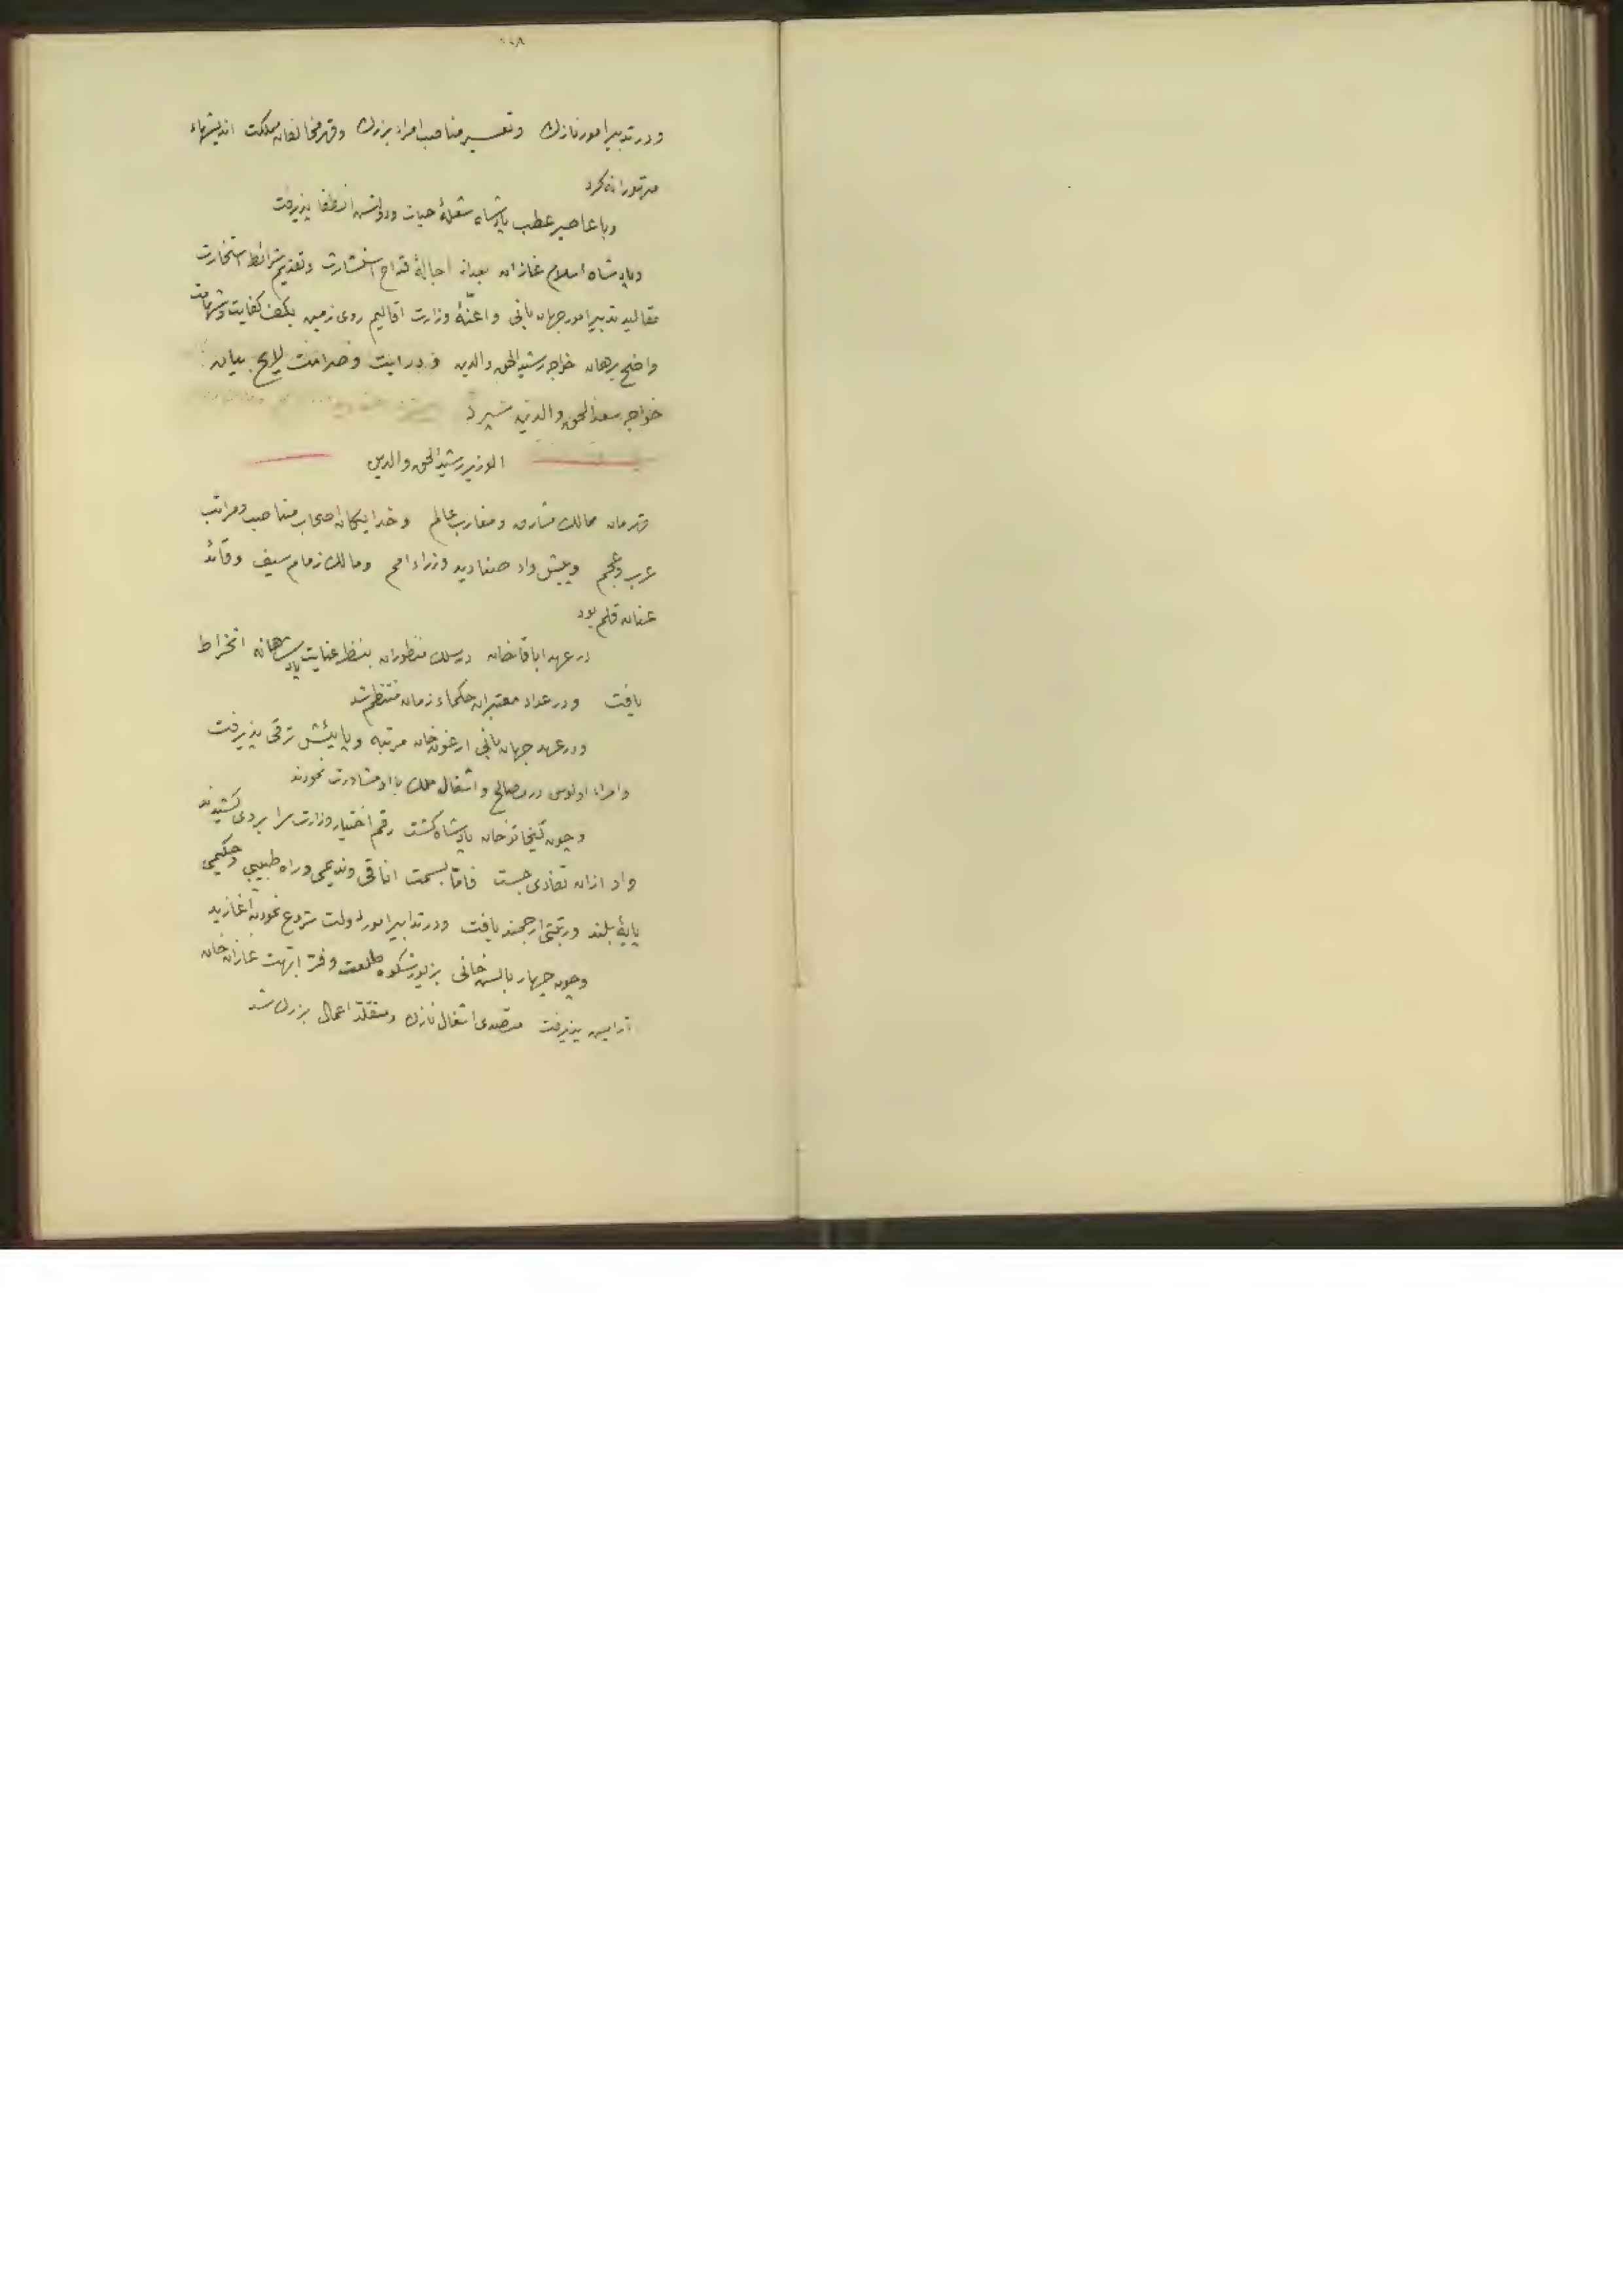 ۱۰۸
ودر تدبیر امور نازک وتغییر مناصب امراء بزرگ وقهر مخالفان مملکت اندیشهاء
متهورانه کرد
وباعاصیر عطب پادشاه شعلهٔ حیات ودولتش انطفا پذیرفت
وپادشاه اسلام غازان بعد از اجالهٔ قداح استشارت وتقدیم شرائط استخارت
مقالید تدبیر امور جهان بانی واعنّهٔ وزارت اقالیم روی زمین بکف کفایت وشهامت
واضح برهان خواجه رشیدالحق والدین ودرایت وصرامت لایح بیان
خواجه سعدالحق والدین سپرد
الوزیر رشیدالحق والدین
قهرمان ممالک مشارق ومغارب عالم وخدایگان اصحاب مناصب ومراتب
عرب وعجم وپیشواء صنادید وزراء امم ومالک زمام سیف وقائد
عنان قلم بود
در عهد اباقاخان در سلک منظوران بنظر عنایت پادشاهانه انخراط
یافت ودر عداد معتبران حکماء زمان منتظم شد
ودر عهد جهان بانی ارغون خان مرتبه وپایهٔش ترقی پذیرفت
وامراء اولوس در مصالح واشغال ملک با او مشاورت نمودند
وچون کیخاتوخان پادشاه گشت رقم اختیار وزارت را بر وی کشیدند
واو ازان تفادی جست فامّا بسمت اناقی وندیمی وراه طبیبی وحکیمی
پایهٔ بلند ورتبتی ارجمند یافت ودر تدابیر امور دولت شروع نمودن اغازید
وچون چهار بالش خانی بزیور شکوه طلعت وفرّ ابّهت غازان خان
آرایش پذیرفت متصدی اشغال نازک ومتقلّد اعمال بزرک شد